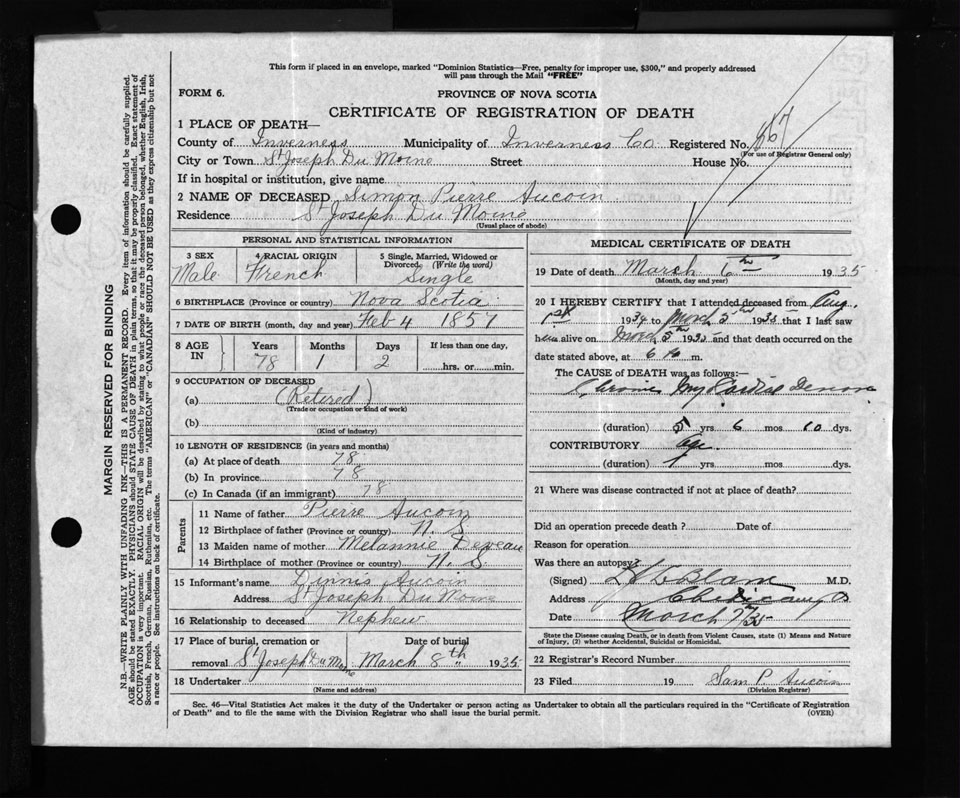 This form if placed in an envelope, marked "Dominion Statistics—Free, penalty for improper use, $300," and properly addressed
will pass through the Mail "FREE"
FORM 6.
PROVINCE OF NOVA SCOTIA
CERTIFICATE OF REGISTRATION OF DEATH
1 PLACE OF DEATH—
County of Inverness Municipality of Inverness Co Registered No. 667
(For use of Registrar General only)
City or Town St Joseph Du Moine Street House No.
If in hospital or institution, give name
2 NAME OF DECEASED Simon Pierre Aucoin
Residence St Joseph Du Moine
(Usual place of abode)
PERSONAL AND STATISTICAL INFORMATION
3 SEX 4 RACIAL ORIGIN 5 Single, Married, Widowed or Divorced (Write the word)
Male French Single
6 BIRTHPLACE (Province or country) Nova Scotia
7 DATE OF BIRTH (month, day and year) Feb 4 1857
8 AGE IN Years Months Days If less than one day,
78 1 2 hrs. or min.
9 OCCUPATION OF DECEASED
(a) (Retired)
(Trade or occupation or kind of work)
(b)
(Kind of industry)
10 LENGTH OF RESIDENCE (in years and months)
(a) At place of death 78
(b) In province 78
(c) In Canada (if an immigrant) 78
Parents
11 Name of father Pierre Aucoin
12 Birthplace of father (Province or country) N. S
13 Maiden name of mother Melannie Deveau
14 Birthplace of mother (Province or country) N. S
15 Informant's name Dinnis Aucoin
Address St Joseph Du Moine
16 Relationship to deceased Nephew
17 Place of burial, cremation or removal St Joseph Du Moine Date of burial March 8th 1935
18 Undertaker
(Name and address)
MEDICAL CERTIFICATE OF DEATH
19 Date of death March 6th 1935
(Month, day and year)
20 I HEREBY CERTIFY that I attended deceased from Aug.
1st 1934 to March 5th 1935 that I last saw
him alive on March 5th 1935 and that death occurred on the
date stated above, at 6 m.
The CAUSE OF DEATH was as follows:—
Chronic Myocardial
(duration) 5 yrs 6 mos 10 dys.
CONTRIBUTORY age
(duration) yrs mos dys.
21 Where was disease contracted if not at place of death?
Did an operation precede death? Date of
Reason for operation
Was there an autopsy?
(Signed) M.D.
Address
Date March 7th 35
State the Disease causing Death, or in death from Violent Causes, state (1) Means and Nature
of Injury, (2) whether Accidental, Suicidal or Homicidal.
22 Registrar's Record Number
23 Filed 19 Sam P. Aucoin
(Division Registrar)
Sec. 46—Vital Statistics Act makes it the duty of the Undertaker or person acting as Undertaker to obtain all the particulars required in the "Certificate of Registration
of Death" and to file the same with the Division Registrar who shall issue the burial permit.
(OVER)
MARGIN RESERVED FOR BINDING
N.B.—WRITE PLAINLY WITH UNFADING INK—THIS IS A PERMANENT RECORD. Every item of information should be carefully supplied.
AGE should be stated EXACTLY. PHYSICIANS should STATE CAUSE OF DEATH in plain terms, so that it may be properly classified. Exact statement of
OCCUPATION is very important. RACIAL ORIGIN will be described by stating to what people or race the deceased person belonged, whether English, Irish,
Scottish, French, German, Russian, Ruthenian, etc. The terms "AMERICAN" or "CANADIAN" SHOULD NOT BE USED as they express citizenship but not
a race or people. See instructions on back of certificate.